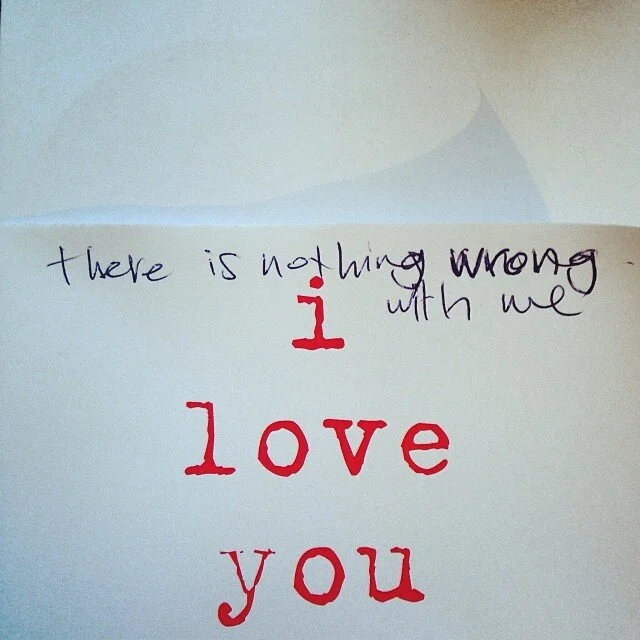 there is nothing wrong
with me
i
love
you